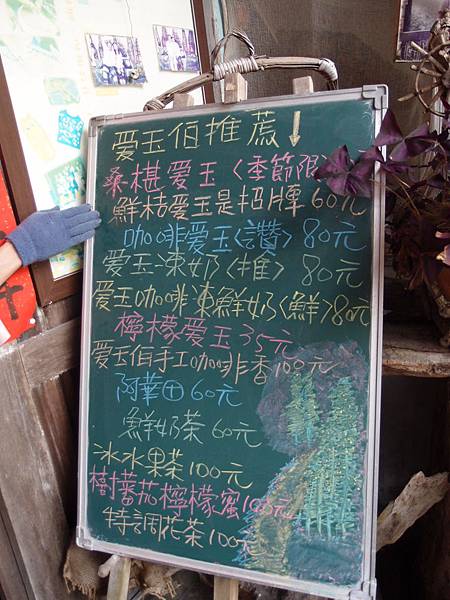 愛玉伯推薦↓
桑椹爱玉〈季節限
鮮桔爱玉是招牌60元
咖啡爱玉〈讚〉80元
爱玉凍奶〈推〉80元
爱玉咖啡凍鮮奶〈鮮〉80元
檸檬爱玉35元
爱玉伯手工咖啡香100元
阿華田60元
鮮奶茶60元
冰水果茶100元
樹蕃茄檸檬蜜100元
特調花茶100元